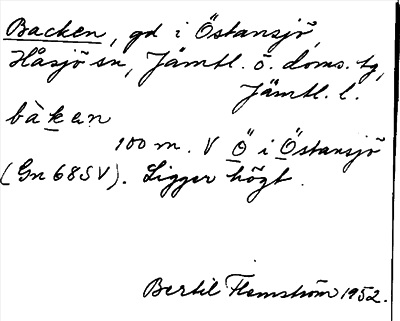 Backen, gd i Östansjö,
Håsjö sn, Jämtl. ö. doms. tg,
Jämtl. l.
bàken
100 m. V Ö i Östansjö
(Gn 68SV). Ligger högt.
Bertil Flemström 1952.